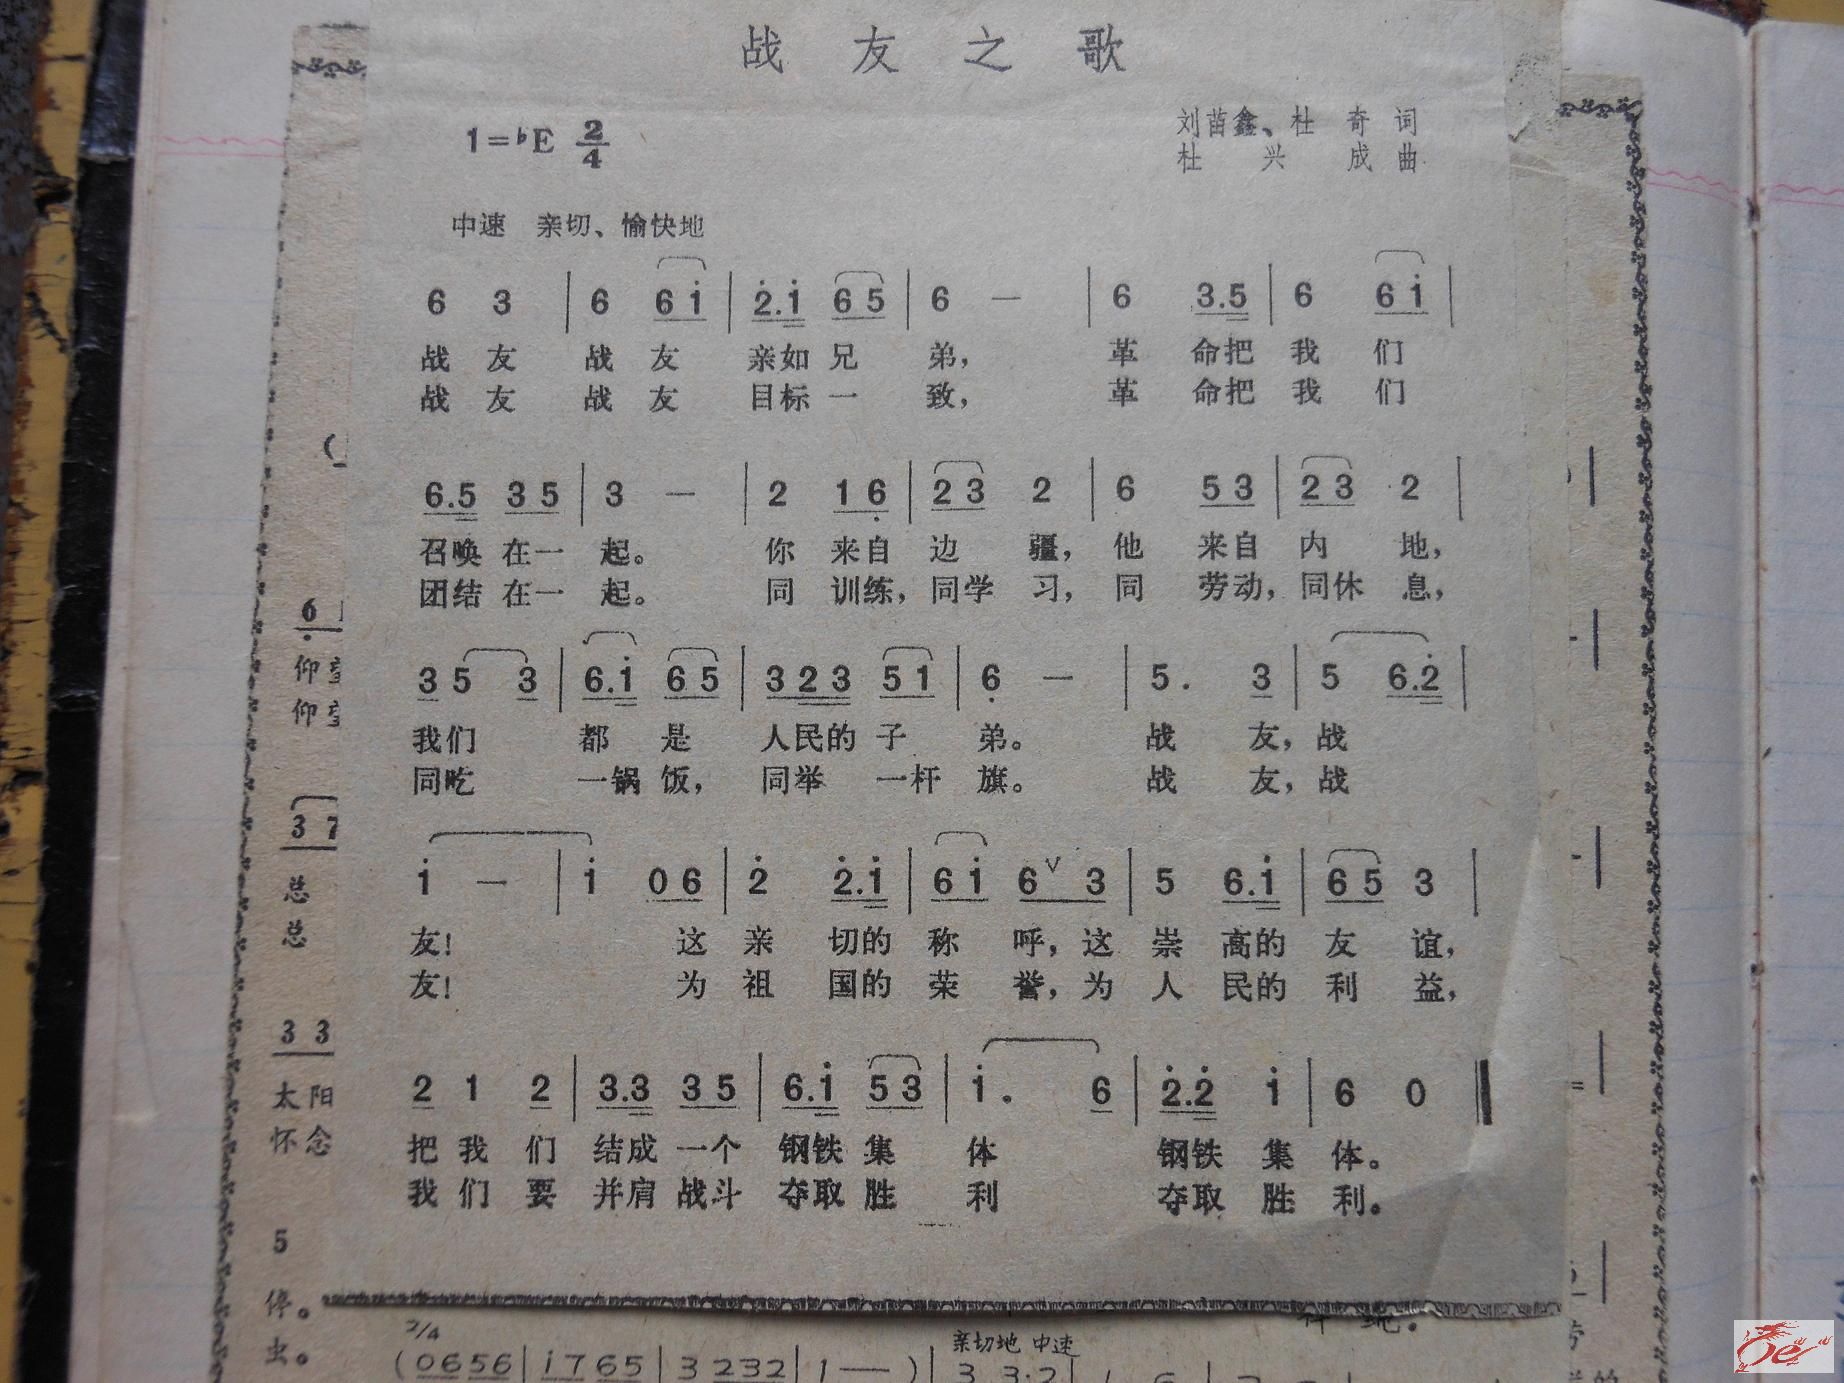 战友之歌
1=♭E 2/4
刘苗鑫、杜奇词
杜兴成曲
中速 亲切、愉快地
6 3 | 6 6 i | 2.i 6 5 | 6 — | 6 3.5 | 6 6 i |
战友 战友 亲如兄弟， 革命把我们
战友 战友 目标一致， 革命把我们
6.5 3 5 | 3 — | 2 1 6 | 2 3 2 | 6 5 3 | 2 3 2 |
召唤在一起。 你来自边疆，他来自内地，
团结在一起。 同训练，同学习，同劳动，同休息，
3 5 3 | 6.i 6 5 | 3 2 3 5 1 | 6 — | 5. 3 | 5 6.2 |
我们都是人民的子弟。 战友，战
同吃一锅饭，同举一杆旗。 战友，战
i — | i 0 6 | 2 2.i | 6 i 6 ∨ 3 | 5 6.i | 6 5 3 |
友！ 这亲切的称呼，这崇高的友谊，
友！ 为祖国的荣誉，为人民的利益，
2 1 2 | 3.3 3 5 | 6.i 5 3 | i. 6 | 2.2 i | 6 0 ‖
把我们结成一个钢铁集体 钢铁集体。
我们要并肩战斗夺取胜利 夺取胜利。
6
仰
仰
3 7
总
总
3 3
太阳
怀念
5
停。
虫。
2/4
亲切地 中速
(0656 | i765 | 3 232 | 1 — — ) | 3 3.2 |